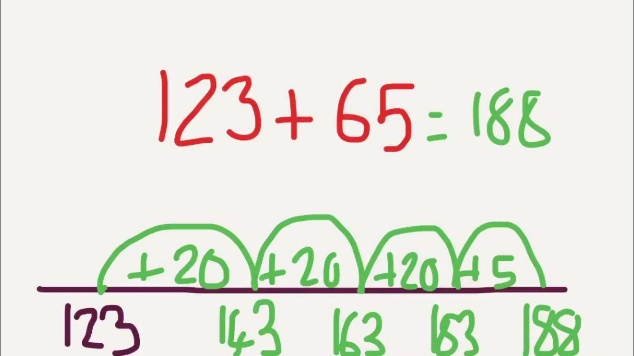 123 + 65 = 188
+20 +20 +20 +5
123 143 163 183 188